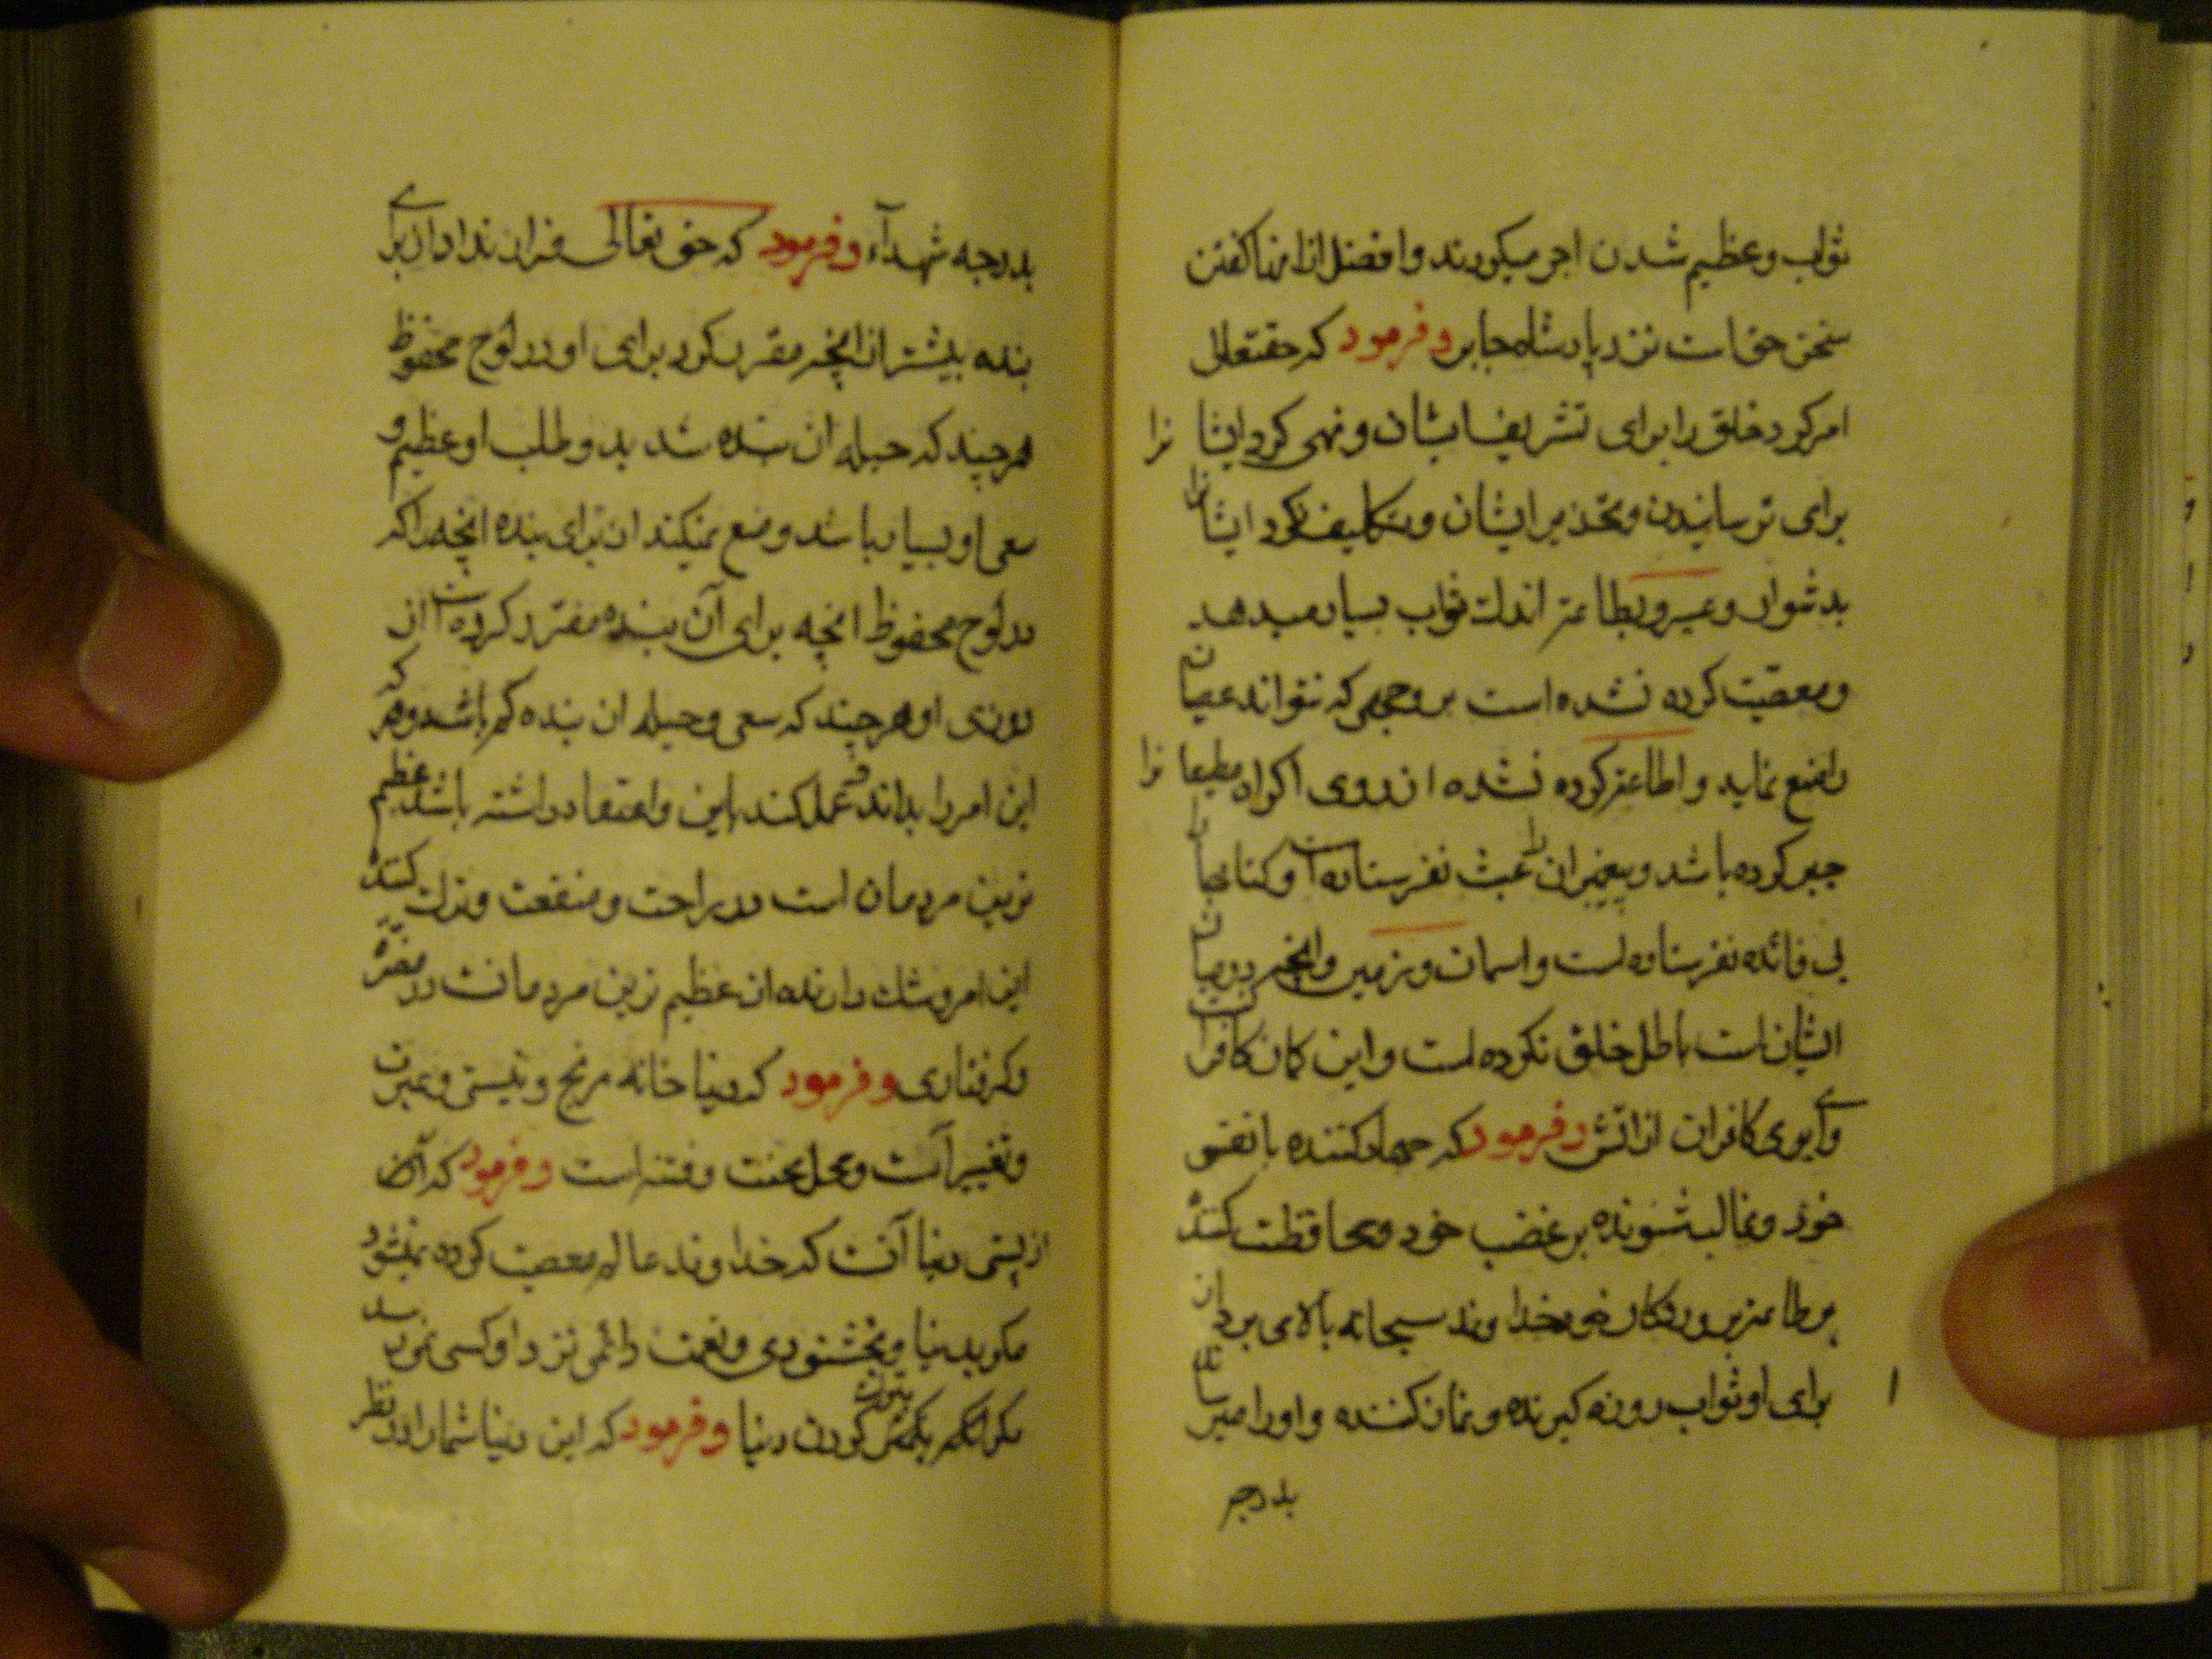 ثواب و عظیم شدن اجر میکردند و افضل از اینها کفتن
سخن حق است نزد پادشاه جابر و فرمود که حقتعالی
امر کرد خلق را برای تشریف ایشان و نهی کرد ایشا نرا
برای ترسانیدن و تحذیر ایشان و تکلیف نکرد ایشانرا
بدشوار و عسیر و بطاعة اندک ثواب بسیار میدهد
و معصیت کرده نشده است بر وجهی که نتواند عصیان
را منع نماید و اطاعة کرده نشده از روی اکراه مطیعا نرا
جبر کرده باشد و پیغمبران را عبث نفرستاده است و کتابها را
بی فائده نفرستاده است و اسمان و زمین و انچه در میان
ایشان است باطل خلق نکرده است و این کمان کافران است
وای بوی کافران از اتش و فرمود که جهاد کننده با نفس
خود و غالب شونده بر غضب خود و محافظت کننده
بر طاعة پروردکار خود خداوند سبحانه بالا می بردازن
برای او ثواب روزه کیرنده و نماز کننده و او را میرساند
بدرجه
بدرجه شهدآء و فرمود که حق تعالی قرار نداد از برای
بنده بیشتر از انچه مقرر کرد برای او در لوح محفوظ
هر چند که حیله ان بنده شدید و طلب او عظیم و
سعی او بسیار باشد و منع نمیکند از برای بنده انچه را که
در لوح محفوظ انچه برای آن بنده مقرر کرده است از
روزی او هر چند که سعی و حیله ان بنده کم باشد و هر که
این امر را بداند و عمل کند باین و اعتقاد داشته باشد عظیم
ترین مردمان است در راحت و منفعت و ترک کننده
این امر و شک دارنده ان عظیم ترین مردمانست در مضرة
و کرفتاری و فرمود که دنیا خانه رنج و نیستی و عبرت
و تغییر است و محل محنت و فتنه است و فرمود که
از پستی دنیا آنست که خداوند عالم معصیت کرده نمیشود
مکر بدنیا و بخشنودی و نعمت دائمی نزد او کسی نمیرسد
مکر انکه بترک کردن دنیا و فرمود که این دنیا شما را در نظر